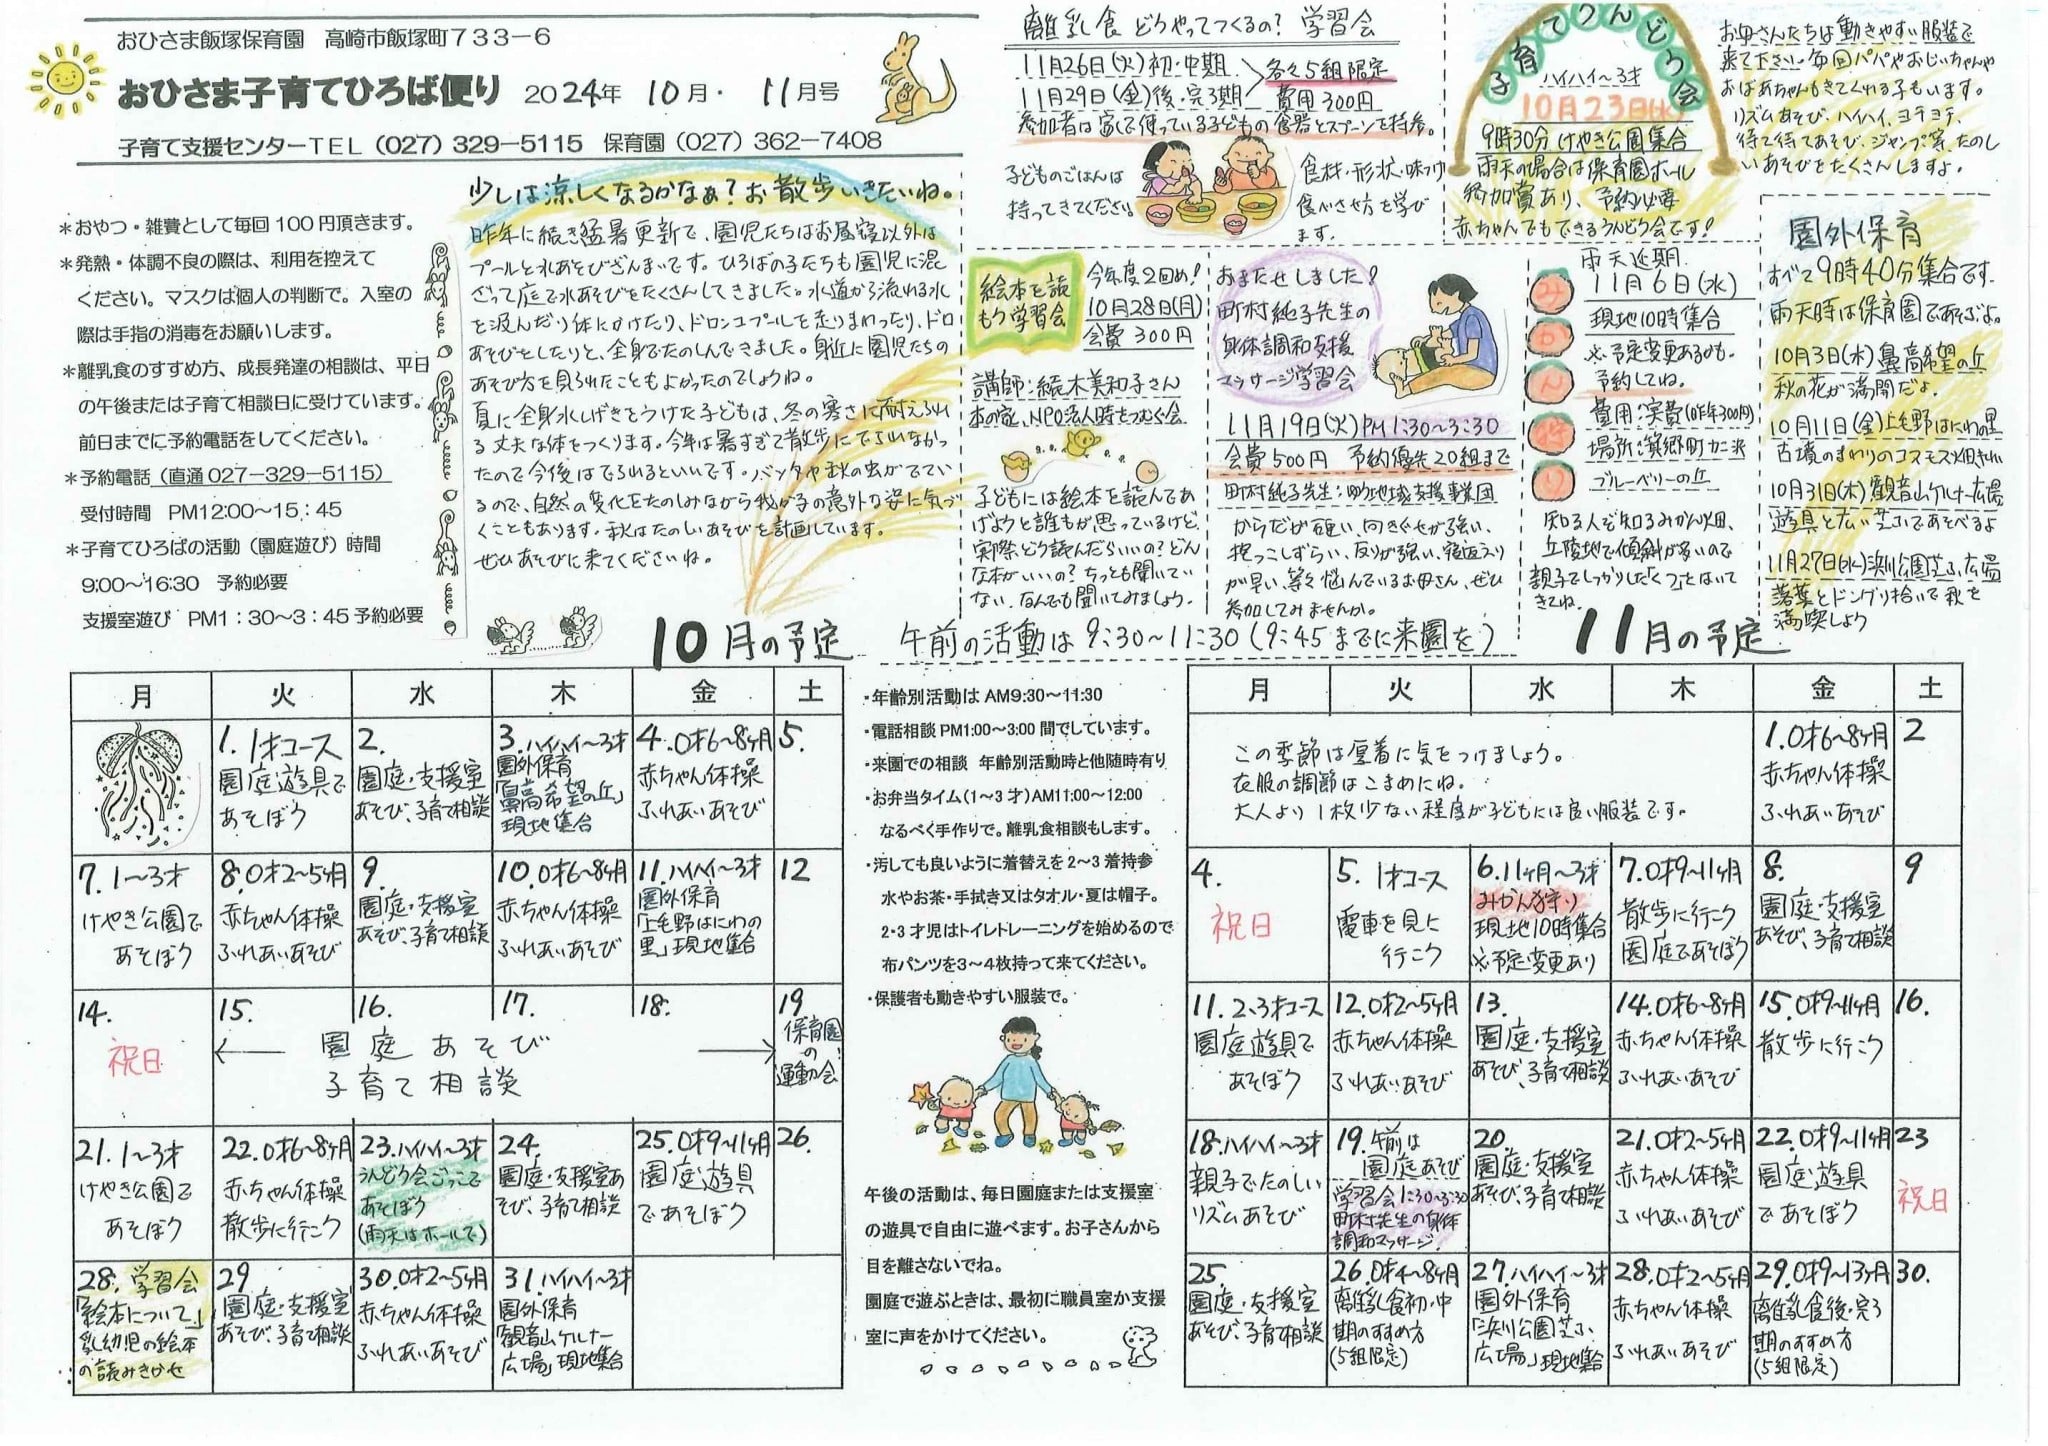 おひさま飯塚保育園　高崎市飯塚町７３３－６
おひさま子育てひろば便り　2024年　10月・　11月号
子育て支援センターTEL（027）329－5115　保育園（027）362－7408
＊おやつ・雑費として毎回100円頂きます。
＊発熱・体調不良の際は、利用を控えて
ください。マスクは個人の判断で。入室の
際は手指の消毒をお願いします。
＊離乳食のすすめ方、成長発達の相談は、平日
の午後または子育て相談日に受けています。
前日までに予約電話をしてください。
＊予約電話（直通027－329－5115）
受付時間　PM12:00～15：45
＊子育てひろばの活動（園庭遊び）時間
9:00～16:30　予約必要
支援室遊び　PM1：30～3：45予約必要
少しは涼しくなるかなぁ？お散歩いきたいね。
昨年に続き猛暑更新で、園児たちはお昼寝以外は
プールと水あそびざんまいです。ひろばの子たちも園児に混
ざって庭で水あそびをたくさんしてきました。水道から流れる水
を汲んだり体にかけたり、ドロンコプールを走りまわったり、ドロ
あそびをしたりと、全身でたのしんできました。身近に園児たちの
あそび方を見られたこともよかったのでしょうね。
夏に全身水しぶきをうけた子どもは、冬の寒さに耐えられ
る丈夫な体をつくります。今年は暑すぎて散歩にでられなかっ
たので今後はでられるといいです。バッタや秋の虫がでてい
るので、自然の変化をたのしみながら我が子の意外な姿に気づ
くこともあります。秋はたのしいあそびを計画しています。
ぜひあそびに来てくださいね。
離乳食 どうやってつくるの？ 学習会
11月26日（火）初・中期
11月29日（金）後・完了期
各々5組限定
費用300円
参加者は家で使っている子どもの食器とスプーンを持参。
子どものごはんは
持ってきてください
食材・形状・味つけ
食べさせ方を学び
ます。
子育てうんどう会
ハイハイ～3才
10月23日（水）
9時30分 けやき公園集合
雨天の場合は保育園ホール
参加賞あり、予約必要
赤ちゃんでもできるうんどう会です！
お母さんたちは動きやすい服装で
来て下さい。毎回パパやおじいちゃんや
おばあちゃんもきてくれる子もいます。
リズムあそび、ハイハイ、ヨチヨチ、
待て待てあそび、ジャンプ等、たのし
いあそびをたくさんしますよ。
絵本を読
もう学習会
今年度2回め！
10月28日（月）
会費300円
講師：続木美和子さん
本の家、NPO法人時をつむぐ会
子どもには絵本を読んであ
げようと誰もが思っているけど、
実際どう読んだらいいの？どん
な本がいいの？ちっとも聞いてい
ない、なんでも聞いてみましょう。
おまたせしました！
町村純子先生の
身体調和支援
マッサージ学習会
11月19日（火）PM1:30～3:30
会費500円　予約優先20組まで
町村純子先生：ゆう地域支援事業団
からだが硬い、向きぐせが強い、
抱っこしずらい、反りが強い、寝返えり
が早い、等々悩んでいるお母さん、ぜひ
参加してみませんか。
みかん狩り
雨天延期
11月6日（水）
現地10時集合
※予定変更あるかも。
予約してね。
費用：実費（昨年300円）
場所：箕郷町カニ沢
ブルーベリーの丘
知る人ぞ知るみかん畑、
丘陵地で傾斜が多いので
親子でしっかりした「くつ」をはいて
きてね。
園外保育
すべて9時40分集合です。
雨天時は保育園であそぶよ。
10月3日（木）鼻高希望の丘
秋の花が満開だよ。
10月11日（金）上毛野はにわの里
古墳のまわりのコスモス畑きれい
10月31日（木）観音山ケルナー広場
遊具と広い芝生であそべるよ
11月27日（水）浜川公園芝ふ広場
落葉とドングリ拾いで秋を
満喫しよう
10月の予定
午前の活動は9:30～11:30（9:45までに来園を）
11月の予定
月 火 水 木 金 土
1. 1才コース
園庭遊具で
あそぼう
2.
園庭・支援室
あそび、子育て相談
3. ハイハイ～3才
園外保育
「鼻高希望の丘」
現地集合
4. 0才6～8ヶ月
赤ちゃん体操
ふれあいあそび
5.
7. 1～3才
けやき公園で
あそぼう
8. 0才2～5ヶ月
赤ちゃん体操
ふれあいあそび
9.
園庭・支援室
あそび、子育て相談
10. 0才6～8ヶ月
赤ちゃん体操
ふれあいあそび
11. ハイハイ～3才
園外保育
「上毛野はにわの
里」現地集合
12
14.
祝日
15.
16.
17.
18.
園庭あそび
子育て相談
19
保育園
の
運動会！
21. 1～3才
けやき公園で
あそぼう
22. 0才6～8ヶ月
赤ちゃん体操
散歩に行こう
23. ハイハイ～3才
うんどう会ごっこで
あそぼう
（雨天はホールで）
24.
園庭・支援室あ
そび、子育て相談
25. 0才9～11ヶ月
園庭遊具
であそぼう
26.
28. 学習会
「絵本について」
乳幼児の絵本
の読みきかせ
29
園庭・支援室
あそび、子育て相談
30. 0才2～5ヶ月
赤ちゃん体操
ふれあいあそび
31. ハイハイ～3才
園外保育
「観音山ケルナー
広場」現地集合
・年齢別活動はAM9:30～11:30
・電話相談PM1:00～3:00間でしています。
・来園での相談　年齢別活動時と他随時有り
・お弁当タイム（1～3才）AM11:00～12:00
なるべく手作りで。離乳食相談もします。
・汚しても良いように着替えを2～3着持参
水やお茶・手拭き又はタオル・夏は帽子。
2・3才児はトイレトレーニングを始めるので
布パンツを3～4枚持って来てください。
・保護者も動きやすい服装で。
午後の活動は、毎日園庭または支援室
の遊具で自由に遊べます。お子さんから
目を離さないでね。
園庭で遊ぶときは、最初に職員室か支援
室に声をかけてください。
月 火 水 木 金 土
この季節は厚着に気をつけましょう。
衣服の調節はこまめにね。
大人より1枚少ない程度が子どもには良い服装です。
1. 0才6～8ヶ月
赤ちゃん体操
ふれあいあそび
2
4.
祝日
5. 1才コース
電車を見に
行こう
6. 11ヶ月～3才
みかん狩り
現地10時集合
※予定変更あり
7. 0才9～11ヶ月
散歩に行こう
園庭であそぼう
8.
園庭・支援室
あそび、子育て相談
9
11. 2.3才コース
園庭遊具で
あそぼう
12. 0才2～5ヶ月
赤ちゃん体操
ふれあいあそび
13.
園庭・支援室
あそび、子育て相談
14. 0才6～8ヶ月
赤ちゃん体操
ふれあいあそび
15. 0才9～11ヶ月
散歩に行こう
16.
18. ハイハイ～3才
親子でたのしい
リズムあそび
19. 午前は
園庭あそび
学習会1:30～3:30
町村先生の身体
調和マッサージ！
20
園庭・支援室
あそび、子育て相談
21. 0才2～5ヶ月
赤ちゃん体操
ふれあいあそび
22. 0才9～11ヶ月
園庭遊具
であそぼう
23
祝日
25.
園庭・支援室
あそび、子育て相談
26. 0才4～8ヶ月
離乳食初・中
期のすすめ方
（5組限定）
27. ハイハイ～3才
園外保育
「浜川公園芝ふ
広場」現地集合
28. 0才2～5ヶ月
赤ちゃん体操
ふれあいあそび
29. 0才9～13ヶ月
離乳食後・完了
期のすすめ方
（5組限定）
30.